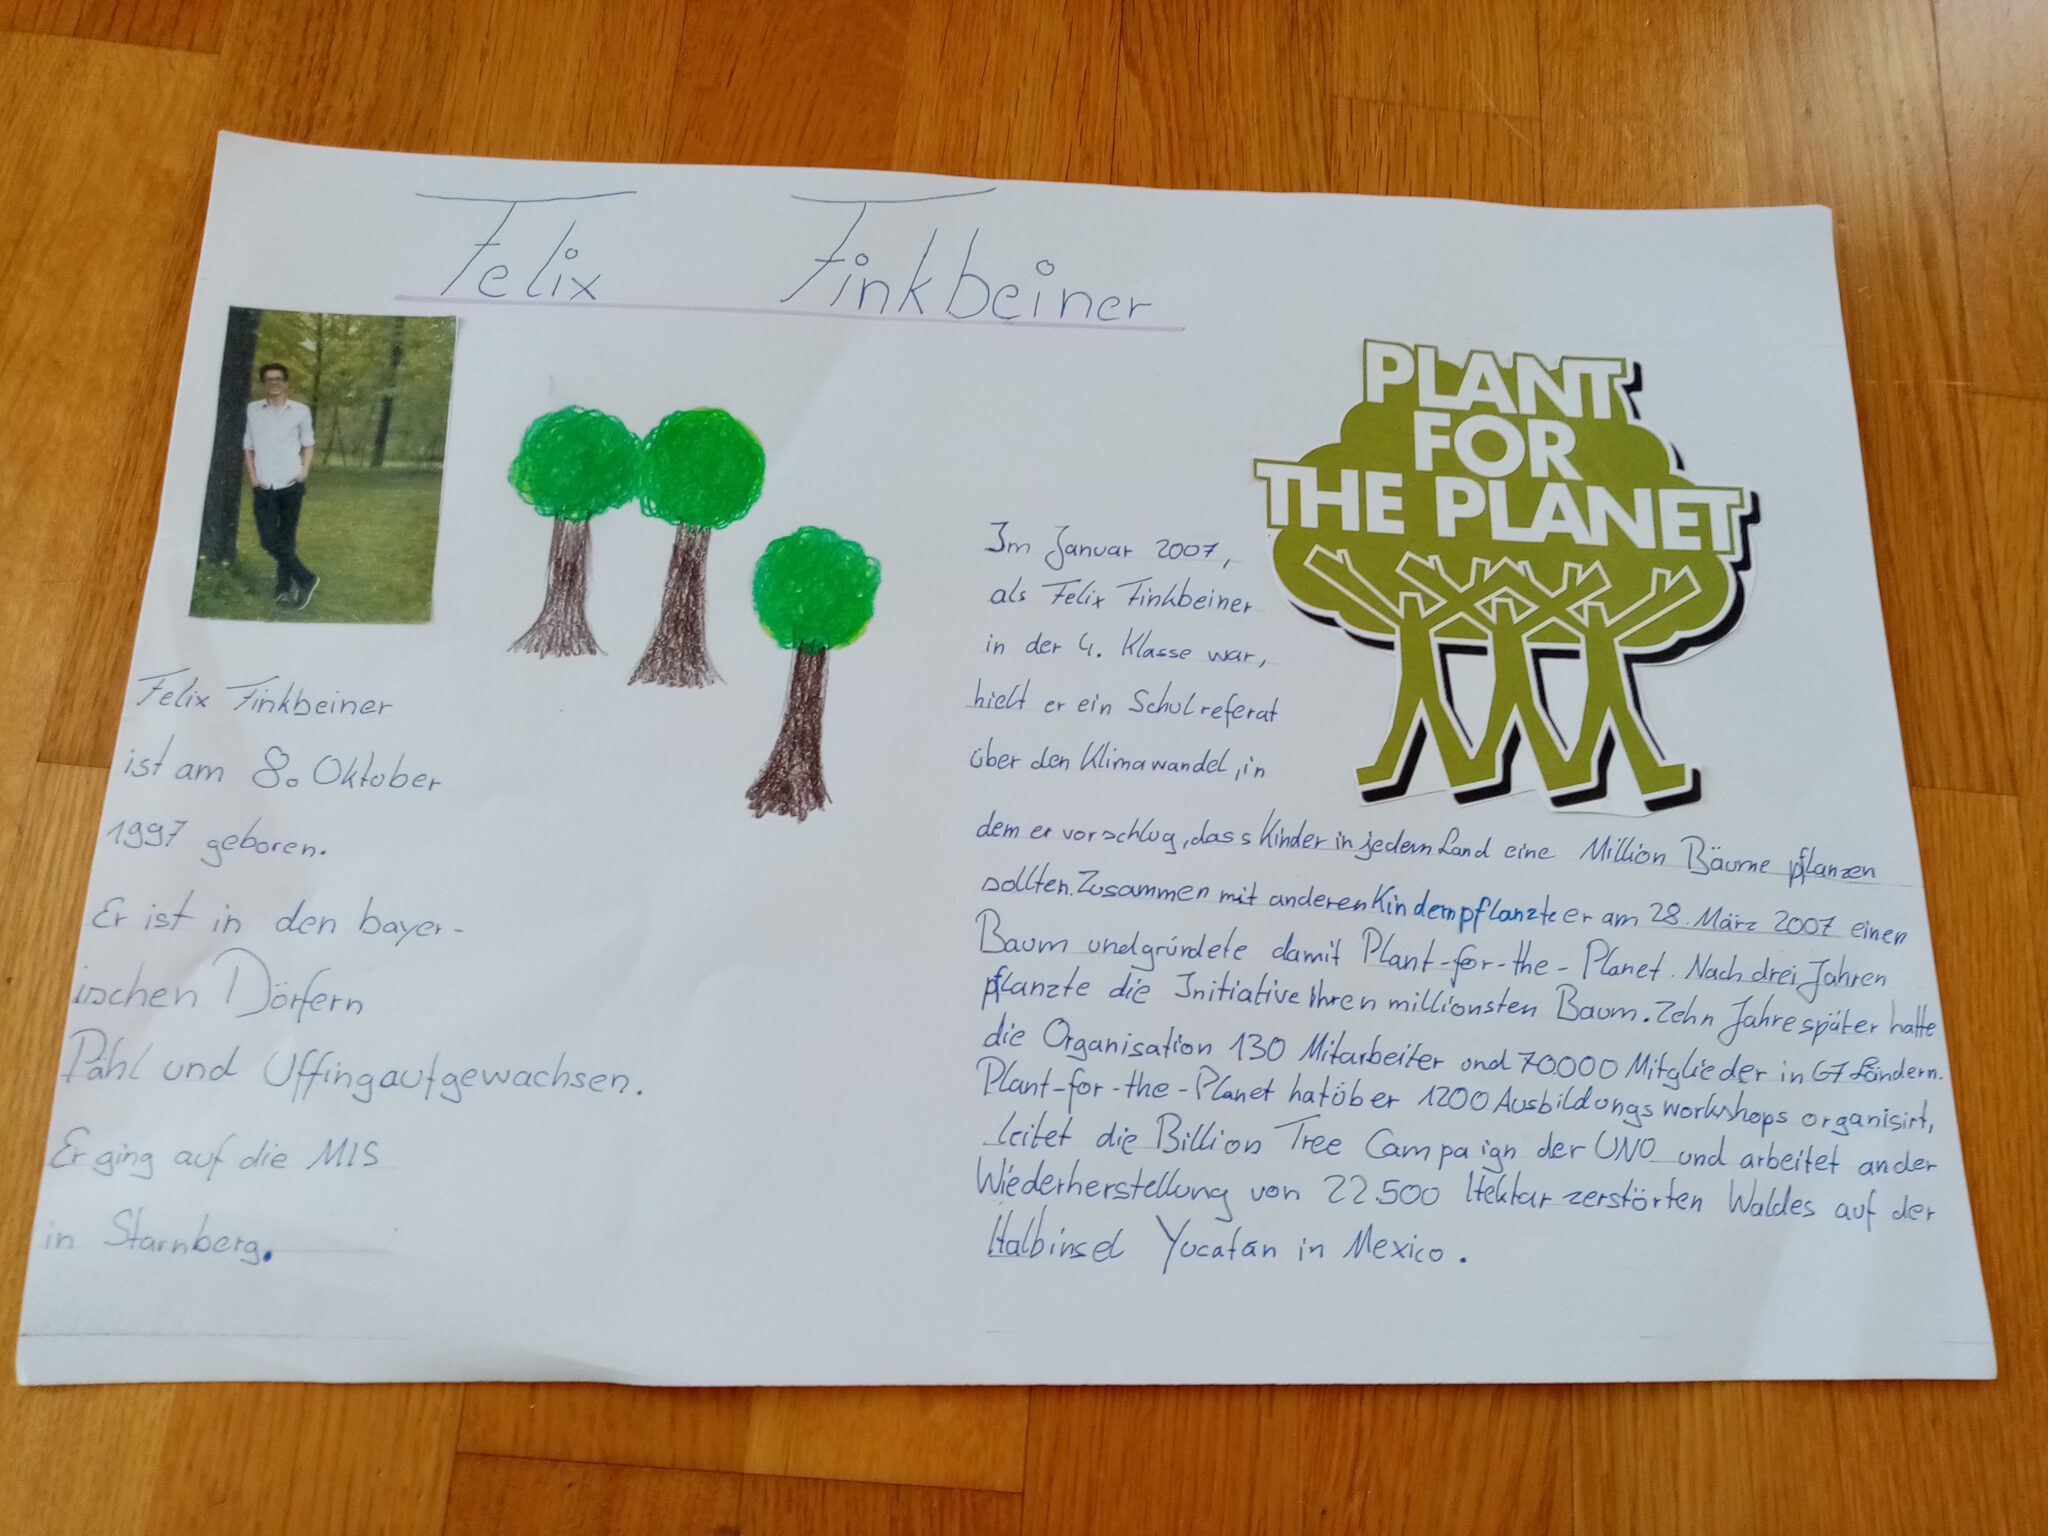 Felix Finkbeiner
Felix Finkbeiner
ist am 8. Oktober
1997 geboren.
Er ist in den bayer-
ischen Dörfern
Pähl und Uffing aufgewachsen.
Er ging auf die MIS
in Starnberg.
PLANT
FOR
THE PLANET
Im Januar 2007,
als Felix Finkbeiner
in der 4. Klasse war,
hielt er ein Schulreferat
über den Klimawandel, in
dem er vorschlug, dass Kinder in jedem Land eine Million Bäume pflanzen
sollten. Zusammen mit anderen Kindern pflanzte er am 28. März 2007 einen
Baum und gründete damit Plant-for-the-Planet. Nach drei Jahren
pflanzte die Initiative ihren millionsten Baum. Zehn Jahre später hatte
die Organisation 130 Mitarbeiter und 70.000 Mitglieder in 67 Ländern.
Plant-for-the-Planet hat über 1200 Ausbildungsworkshops organisirt,
leitet die Billion Tree Campaign der UNO und arbeitet an der
Wiederherstellung von 22.500 Hektar zerstörten Waldes auf der
Halbinsel Yucatán in Mexico.